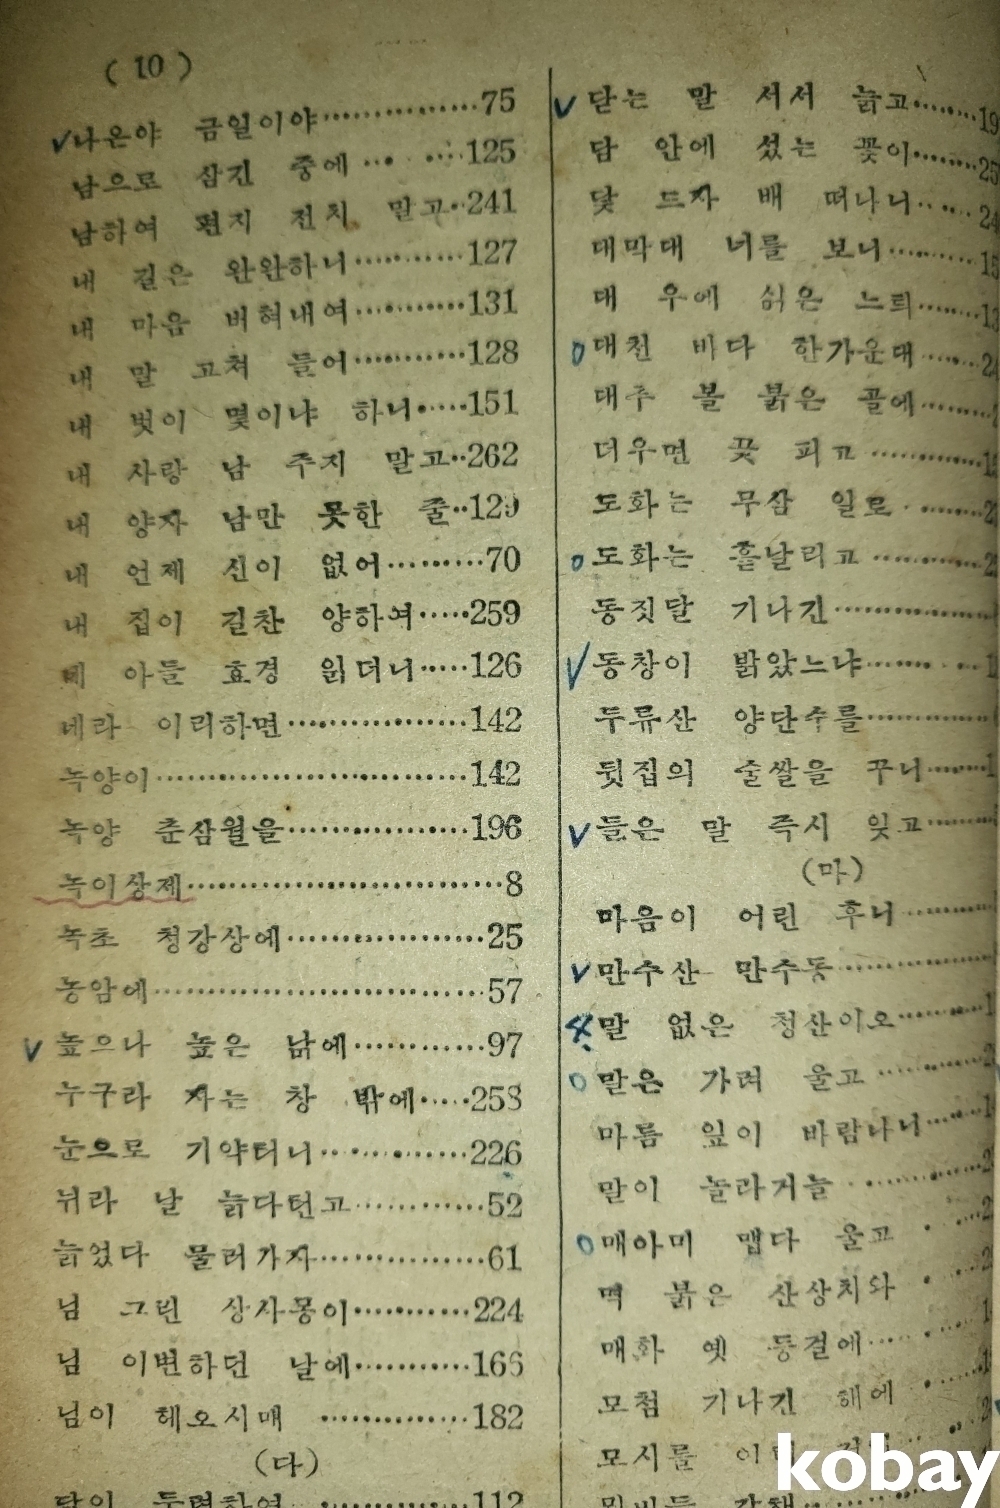 ( 10 )
나온야 금일이야……………75
남으로 삼긴 중에… …125
남하여 편지 전치 말고‥241
내 길은 완완하니…………127
내 마음 버혀내여…………131
내 말 고쳐 들어…………128
내 벗이 몇이냐 하니……151
내 사랑 남 주지 말고‥262
내 양자 남만 못한 줄‥129
내 언제 신이 없어………70
내 집이 길찬 양하여……259
네 아들 효경 읽더니……126
네라 이리하면………………142
녹양이…………………………142
녹양 춘삼월을………………196
녹이상제…………………………8
녹초 청강상에………………25
농암에…………………………57
높으나 높은 낢에…………97
누구라 자는 창 밖에……258
눈으로 기약터니……………226
뉘라 날 늙다턴고…………52
늙었다 물러가자……………61
님 그린 상사몽이…………224
님 이별하던 날에…………166
님이 헤오시매 ……………182
(다)
112
닫는 말 서서 늙고……19
담 안에 섰는 꽃이……25
닻 드자 배 떠나니……24
대막대 너를 보니………15
대 우에 심은 느틔……13
대천 바다 한가운대……24
대추 볼 붉은 골에………
더우면 꽃 피고…………
도화는 무삼 일로………
도화는 흩날리고…………
동짓달 기나긴……………
동창이 밝았느냐…………
두류산 양단수를…………
뒷집의 술쌀을 꾸니……
들은 말 즉시 잊고………
(마)
마음이 어린 후니………
만수산 만수동……………
말 없은 청산이오………
말은 가려 울고…………
마름 잎이 바람나니……
말이 놀라거늘……………
매아미 맵다 울고………
멱 붉은 산상치와………
매화 옛 등걸에…………
모첨 기나긴 해에………
모시를
kobay